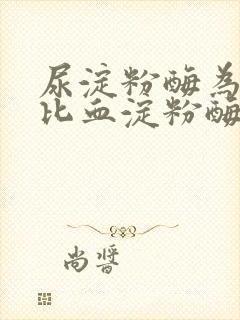 尿淀粉酶為
比血淀粉酶
尚晋